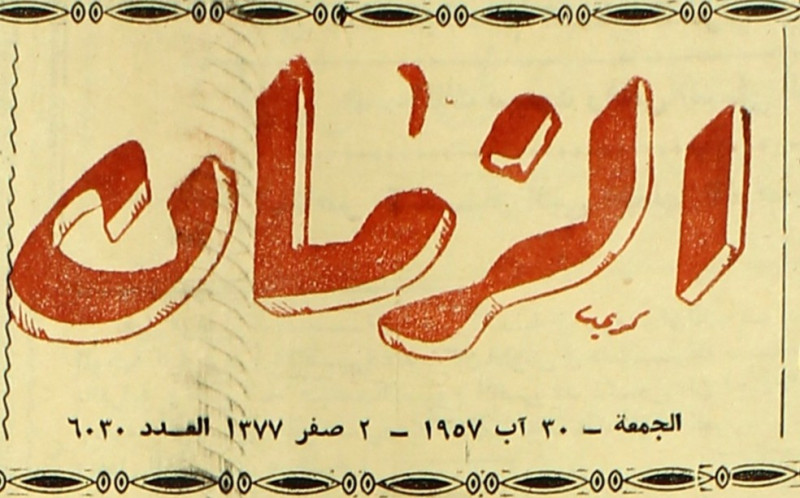 الزمان
الجمعة – ٣٠ آب ١٩٥٧ – ٢ صفر ١٣٧٧ العدد ٦٠٣٠